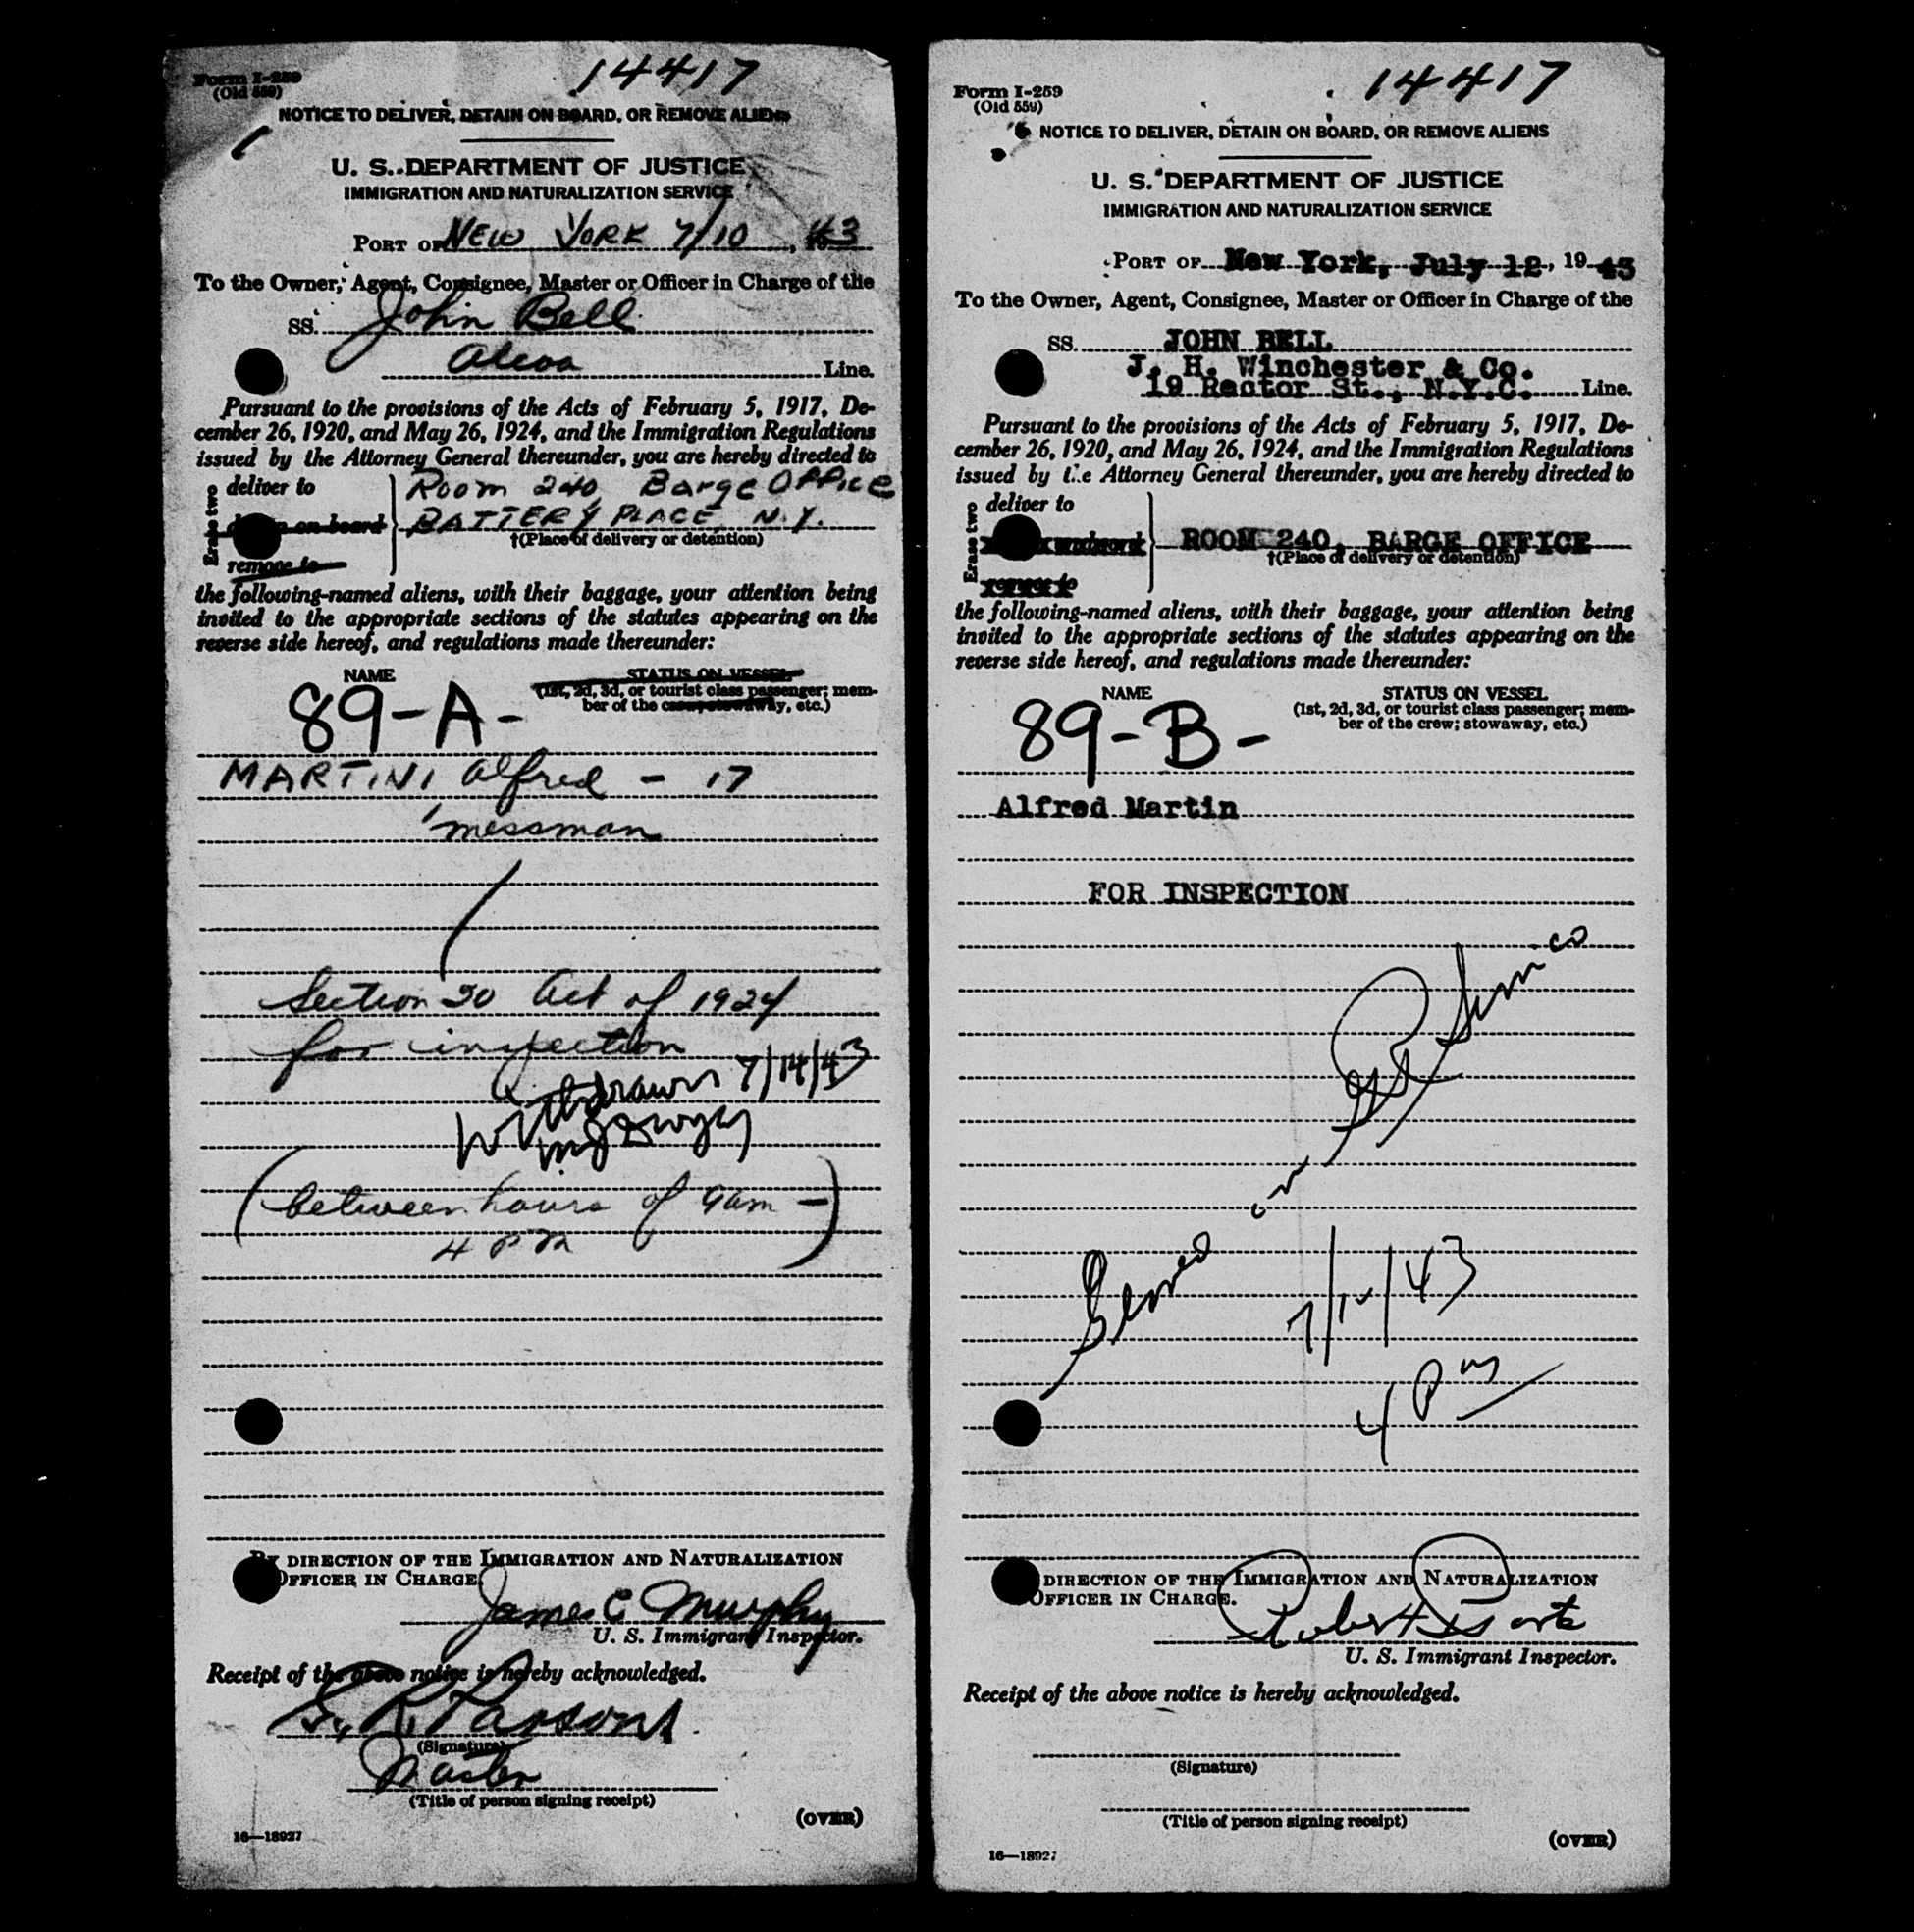 Form I-259
(Old 559)
14417
NOTICE TO DELIVER, DETAIN ON BOARD, OR REMOVE ALIENS
U. S. DEPARTMENT OF JUSTICE
IMMIGRATION AND NATURALIZATION SERVICE
PORT OF NEW YORK 7/10, 43
To the Owner, Agent, Consignee, Master or Officer in Charge of the
SS. John Bell
Alcoa Line.
Pursuant to the provisions of the Acts of February 5, 1917, De-
cember 26, 1920, and May 26, 1924, and the Immigration Regulations
issued by the Attorney General thereunder, you are hereby directed to
Erase two
deliver to
on board
remove to
Room 240, Barge OFFice
BATTERY PLACE, N.Y.
†(Place of delivery or detention)
the following-named aliens, with their baggage, your attention being
invited to the appropriate sections of the statutes appearing on the
reverse side hereof, and regulations made thereunder:
NAME
STATUS ON VESSEL
(1st, 2d, 3d, or tourist class passenger; mem-
ber of the crew; stowaway, etc.)
89-A-
MARTINI, Alfred - 17
messman
Section 20 Act of 1924
for inspection
Withdrawn 7/14/43
(between hours of 9am -
4 PM)
BY DIRECTION OF THE IMMIGRATION AND NATURALIZATION
OFFICER IN CHARGE.
James C Murphy
U. S. Immigrant Inspector.
Receipt of the above notice is hereby acknowledged.
S. R. Parsons
(Signature)
Master
(Title of person signing receipt)
(OVER)
16—18927
Form I-259
(Old 559)
14417
NOTICE TO DELIVER, DETAIN ON BOARD, OR REMOVE ALIENS
U. S. DEPARTMENT OF JUSTICE
IMMIGRATION AND NATURALIZATION SERVICE
PORT OF New York, July 12, 1943
To the Owner, Agent, Consignee, Master or Officer in Charge of the
SS. JOHN BELL
J. H. Winchester & Co.
19 Rector St., N.Y.C. Line.
Pursuant to the provisions of the Acts of February 5, 1917, De-
cember 26, 1920, and May 26, 1924, and the Immigration Regulations
issued by the Attorney General thereunder, you are hereby directed to
Erase two
deliver to
remove to
ROOM 240, BARGE OFFICE
†(Place of delivery or detention)
the following-named aliens, with their baggage, your attention being
invited to the appropriate sections of the statutes appearing on the
reverse side hereof, and regulations made thereunder:
NAME
STATUS ON VESSEL
(1st, 2d, 3d, or tourist class passenger; mem-
ber of the crew; stowaway, etc.)
89-B-
Alfred Martin
FOR INSPECTION
Served on
7/12/43
4 Pm
DIRECTION OF THE IMMIGRATION AND NATURALIZATION
OFFICER IN CHARGE.
Robert
U. S. Immigrant Inspector.
Receipt of the above notice is hereby acknowledged.
(Signature)
(Title of person signing receipt)
(OVER)
16—18927